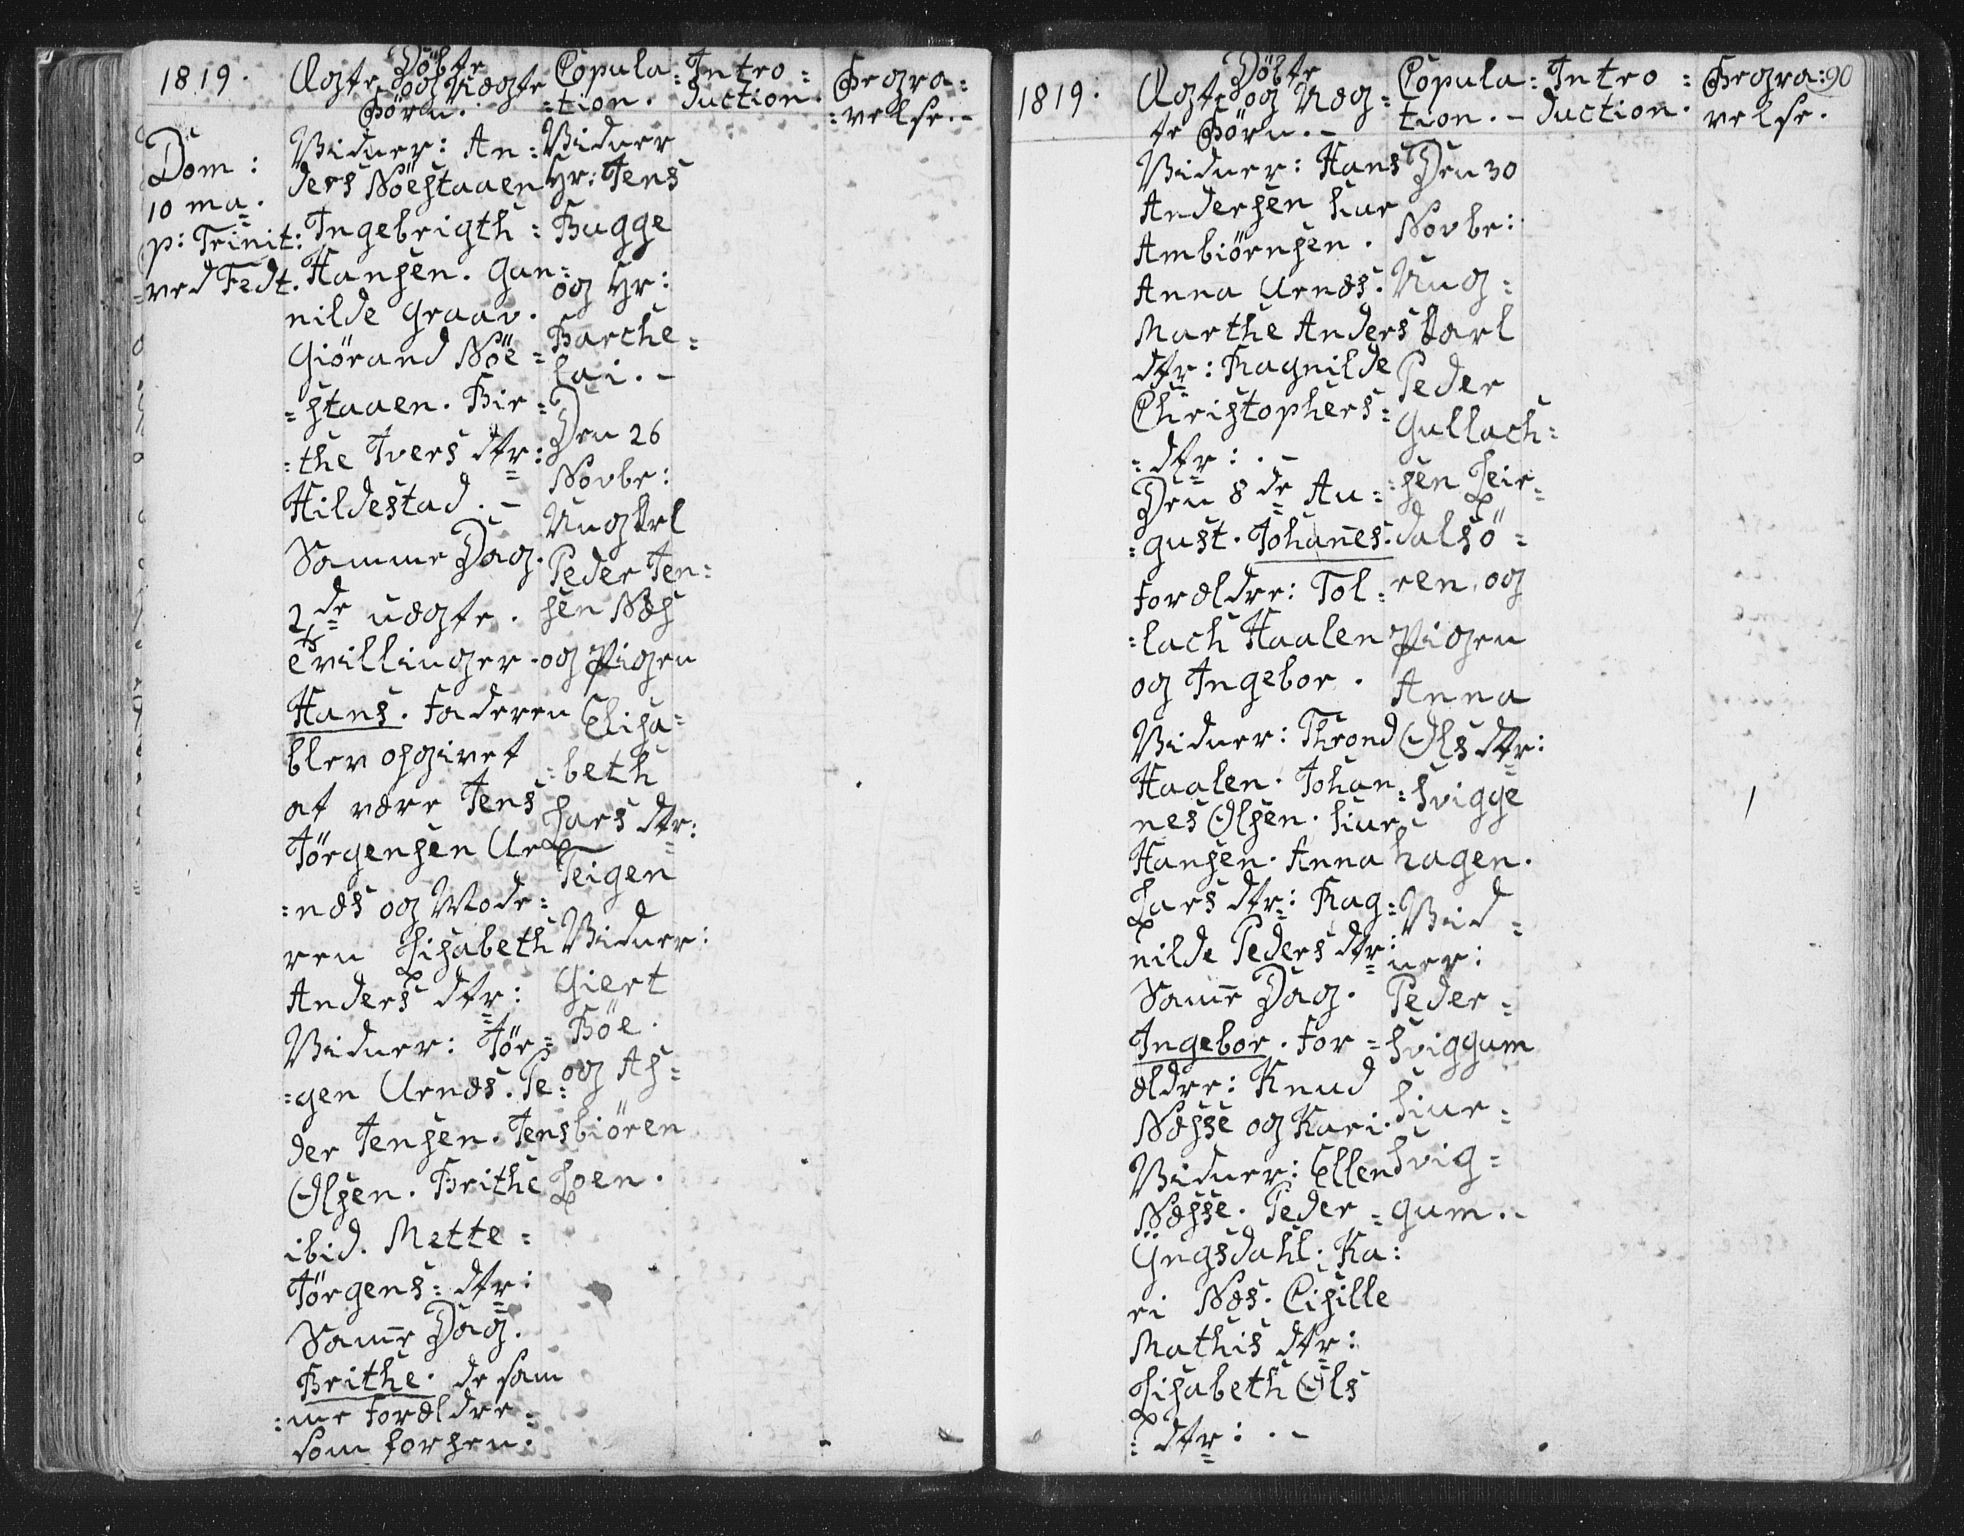 1819.
Døbte
Ægte og Uægte
Børn.
Copula=
=tion.
Intro=
duction.
Begra=
=velse.-
Dom:
10 ma.
p: Trinit:
ved Fedt.
Vidner: An=
ders Nöestaaen
Ingebrigth=
Hansen. Gun=
nilde Graav.
Giörand Nöe=
=staaen. Bir=
=the Ivers dtr:
Hildestad.-
Samme Dag.
2de uægte.
tvillinger.
Hans. Faderen
blev opgivet
at være Jens
Jörgensen Ur
=næs og Mode=
ren Lisabeth
Anders dtr:
Vidner: Jör=
=gen Urnæs. Pe=
der Jensen. Jens
Olsen. Brithe
ibid. Mette=
Jörgens=dtr:
Samme Dag.
Brithe. de sam
=me Forældre=
som forhen.
Vidner
Hr: Jens
Bugge
og Hr:
Barthe=
lai.-
Den 26
Novbr:
Ungkrl
Peder Jen=
sen Næs
og Pigen
Elisa=
=beth
Lars dtr:
Teigen
Vidner:
Giert
Böe.
og As=
biören
Loen.
1819.
Døbte
Ægte og Uæg=
te Børn.-
Copula=
tion.-
Intro=
duction.
Begra=
velse.
90
Vidner: Hans
Andersen Siur
Ambiörnsen.
Anna Urnæs.
Marthe Anders
dtr: Ragnilde
Christophers=
=dtr:.-
Den 8de Au=
=gust. Johannes.
Forældre: Tol=
=lach Haalen
og Ingebor.
Vidner: Thrond
Haalen. Johan=
nes Olsen. Siur
Hansen. Anna
Lars dtr: Rag=
nilde Peders dtr:
Samme Dag.
Ingebor. For=
ældre: Knud
Næsse og Kari.
Vidner: Ellen
Næsse. Peder=
Yngsdahl. Ka:
ri Næs. Cisille
Mathis dtr:
Lisabeth Ols
=dtr:.-
Den 30
Novbr:
Ung=
karl
Peder
Gullach=
=sen Leir=
dalsö=
ren, og
Pigen
Anna
Ols dtr:
Svigge
hagen.
Vid=
ner:
Peder=
Sviggum
Siur=
Svig=
gum.-